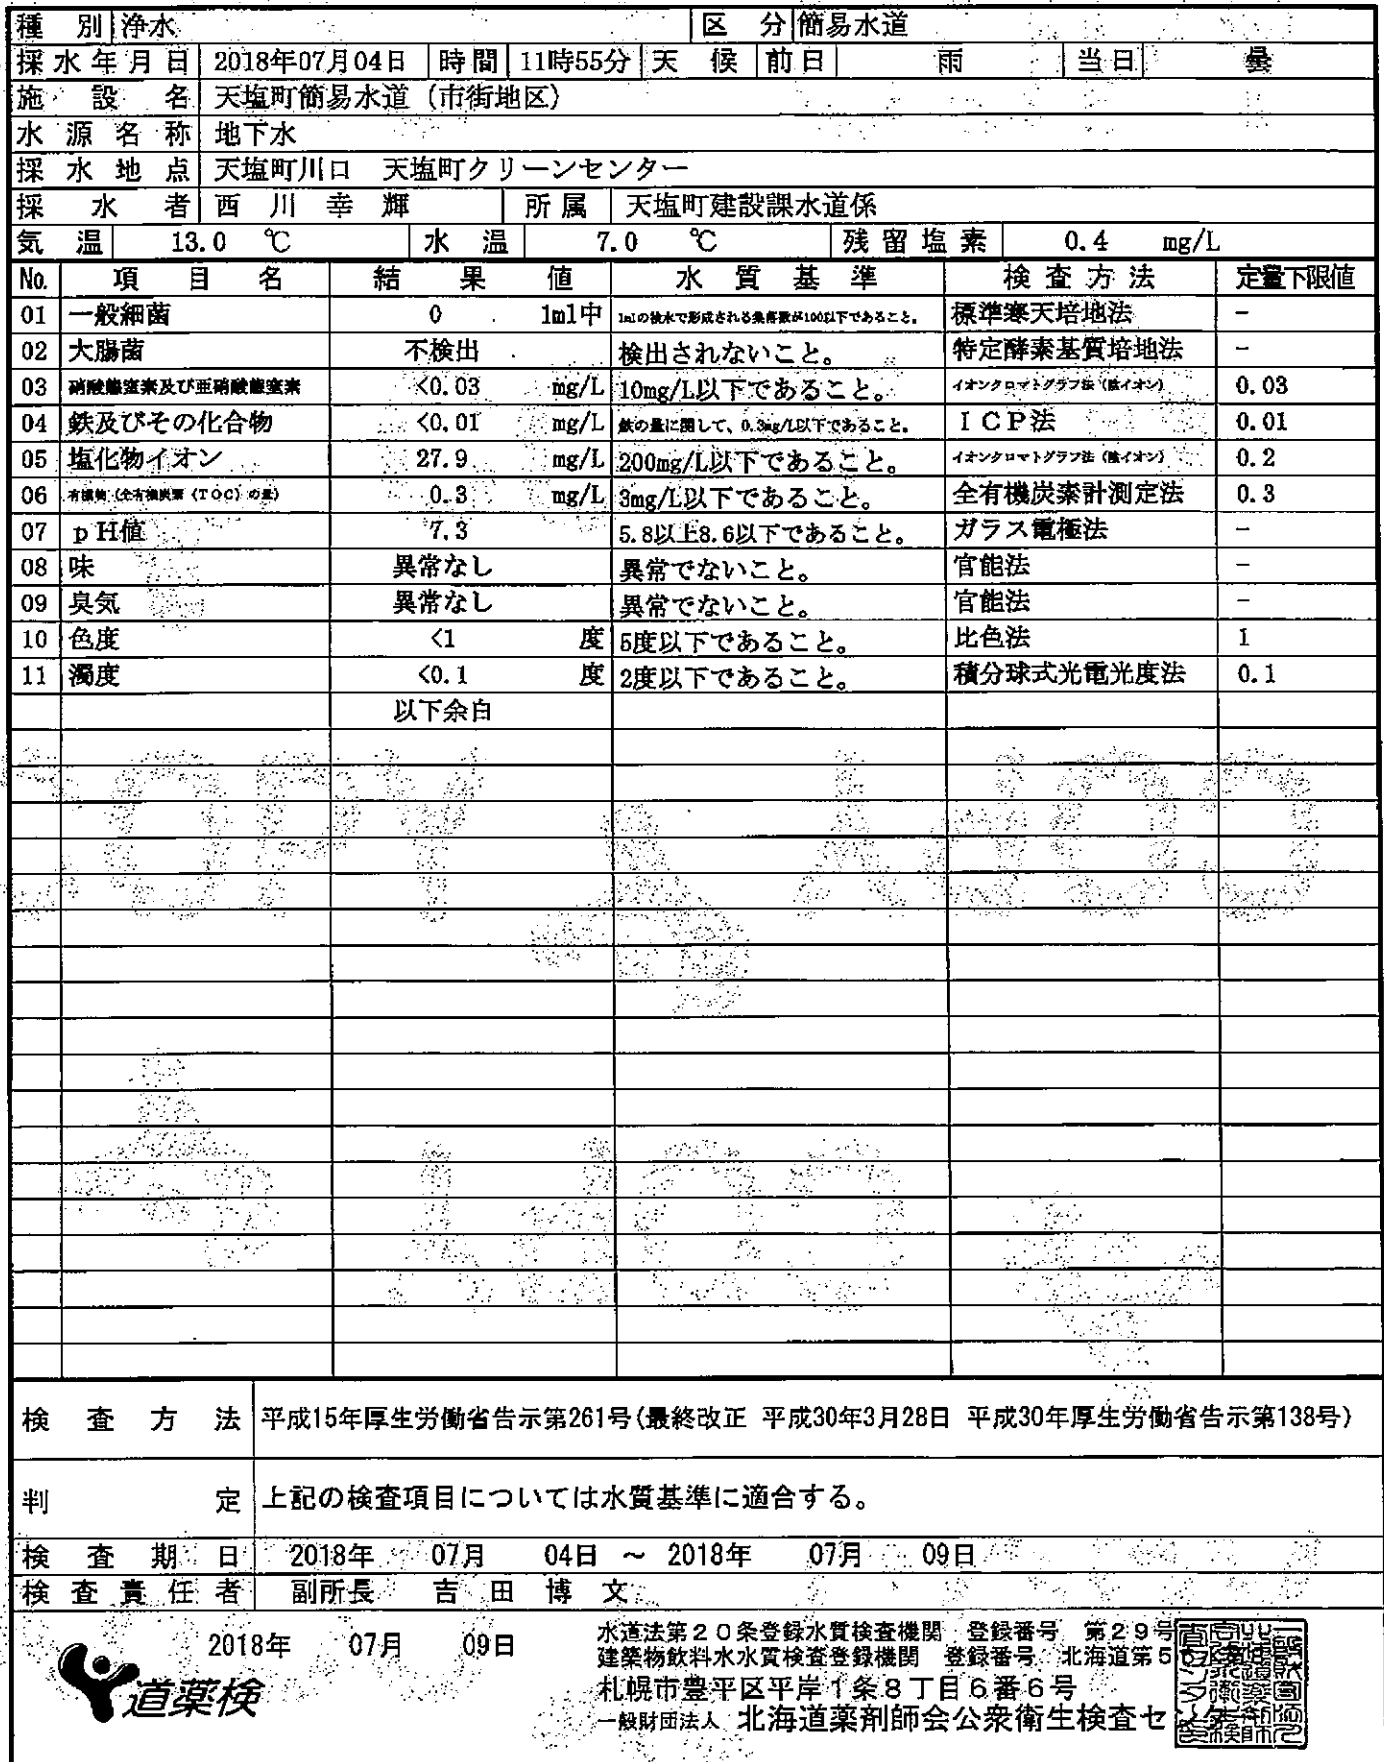 種別 浄水 区分 簡易水道
採水年月日 2018年07月04日 時間 11時55分 天候 前日 雨 当日 曇
施設名 天塩町簡易水道（市街地区）
水源名称 地下水
採水地点 天塩町川口 天塩町クリーンセンター
採水者 西川幸輝 所属 天塩町建設課水道係
気温 13.0 ℃ 水温 7.0 ℃ 残留塩素 0.4 mg/L
No. 項目名 結果値 水質基準 検査方法 定量下限値
01 一般細菌 0 1ml中 1mlの検水で形成される集落数が100以下であること。 標準寒天培地法 -
02 大腸菌 不検出 検出されないこと。 特定酵素基質培地法 -
03 硝酸態窒素及び亜硝酸態窒素 <0.03 mg/L 10mg/L以下であること。 イオンクロマトグラフ法（陰イオン） 0.03
04 鉄及びその化合物 <0.01 mg/L 鉄の量に関して、0.3mg/L以下であること。 ICP法 0.01
05 塩化物イオン 27.9 mg/L 200mg/L以下であること。 イオンクロマトグラフ法（陰イオン） 0.2
06 有機物（全有機炭素（TOC）の量） 0.3 mg/L 3mg/L以下であること。 全有機炭素計測定法 0.3
07 pH値 7.3 5.8以上8.6以下であること。 ガラス電極法 -
08 味 異常なし 異常でないこと。 官能法 -
09 臭気 異常なし 異常でないこと。 官能法 -
10 色度 <1 度 5度以下であること。 比色法 1
11 濁度 <0.1 度 2度以下であること。 積分球式光電光度法 0.1
以下余白
検査方法 平成15年厚生労働省告示第261号(最終改正 平成30年3月28日 平成30年厚生労働省告示第138号)
判定 上記の検査項目については水質基準に適合する。
検査期日 2018年 07月 04日 ～ 2018年 07月 09日
検査責任者 副所長 吉田博文
2018年 07月 09日
道薬検
水道法第20条登録水質検査機関 登録番号 第29号
建築物飲料水水質検査登録機関 登録番号 北海道第5
札幌市豊平区平岸1条8丁目6番6号
一般財団法人 北海道薬剤師会公衆衛生検査セ